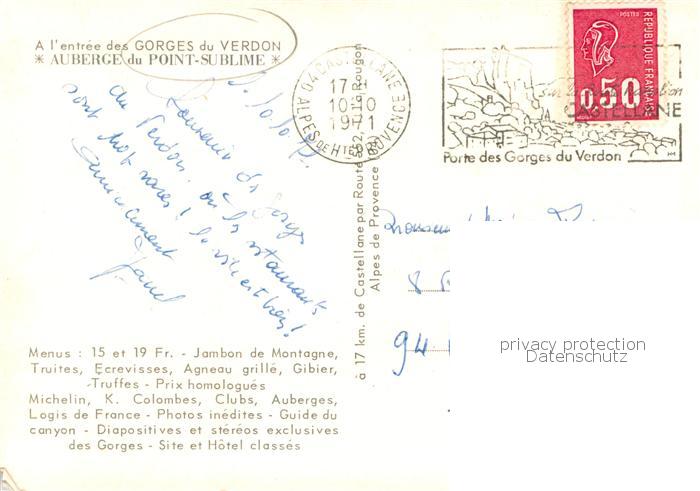 A l'entrée des GORGES du VERDON
* AUBERGE du POINT-SUBLIME *
Souvenir des Gorges
du Verdon où les restaurants
sont trop rares! la vie est
amicalement
Menus : 15 et 19 Fr. - Jambon de Montagne,
Truites, Ecrevisses, Agneau grillé, Gibier,
-Truffes - Prix homologués
Michelin, K. Colombes, Clubs, Auberges,
Logis de France - Photos inédites - Guide du
canyon - Diapositives et stéréos exclusives
des Gorges - Site et Hôtel classés
à 17 km. de Castellane par Rougon
Alpes de Provence
04 CASTELLANE
17 H
10-10
1971
ALPES DE HTE PROVENCE
CASTELLANE
Porte des Gorges du Verdon
POSTES
REPUBLIQUE FRANÇAISE
0,50
Monsieur
8
94
privacy protection
Datenschutz